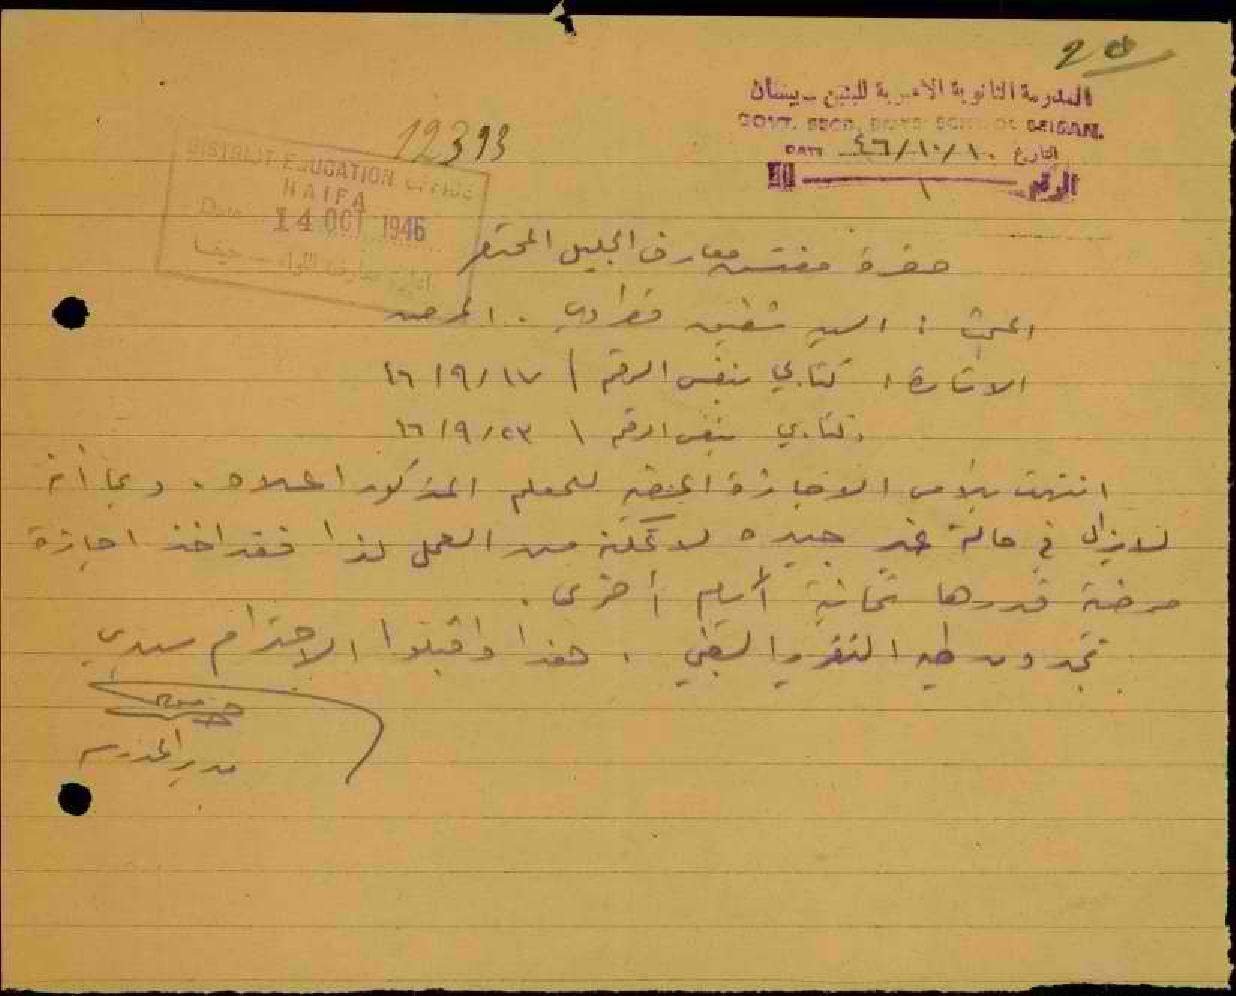 المدرسة الثانوية الاميرية للبنين - بيسان
GOVT. SECD. BOYS' SCHOOL BEISAN.
DATE ٤٦/١٠/١٠ التاريخ
الرقم ١
12393
DISTRICT EDUCATION OFFICE
HAIFA
Date 14 OCT 1946
ادارة معارف اللواء - حيفا
حضرة مفتش معارف الجليل المحترم
البحث : السيد شفيق
الاشارة : كتابي بنفس الرقم ٤٦/٩/١٧
وكتابي بنفس الرقم ٤٦/٩/٢٣
انتهت بالامس الاجازة المرضية للمعلم المذكور اعلاه . وبما أنه
لا يزال في حالة غير جيده لا تمكنه من العمل لذا فقد اخذ اجازة
مرضية قدرها ثمانية أيام أخرى .
تجدون طيه التقرير الطبي . هذا واقبلوا الاحترام سيدي
مدير المدرسة